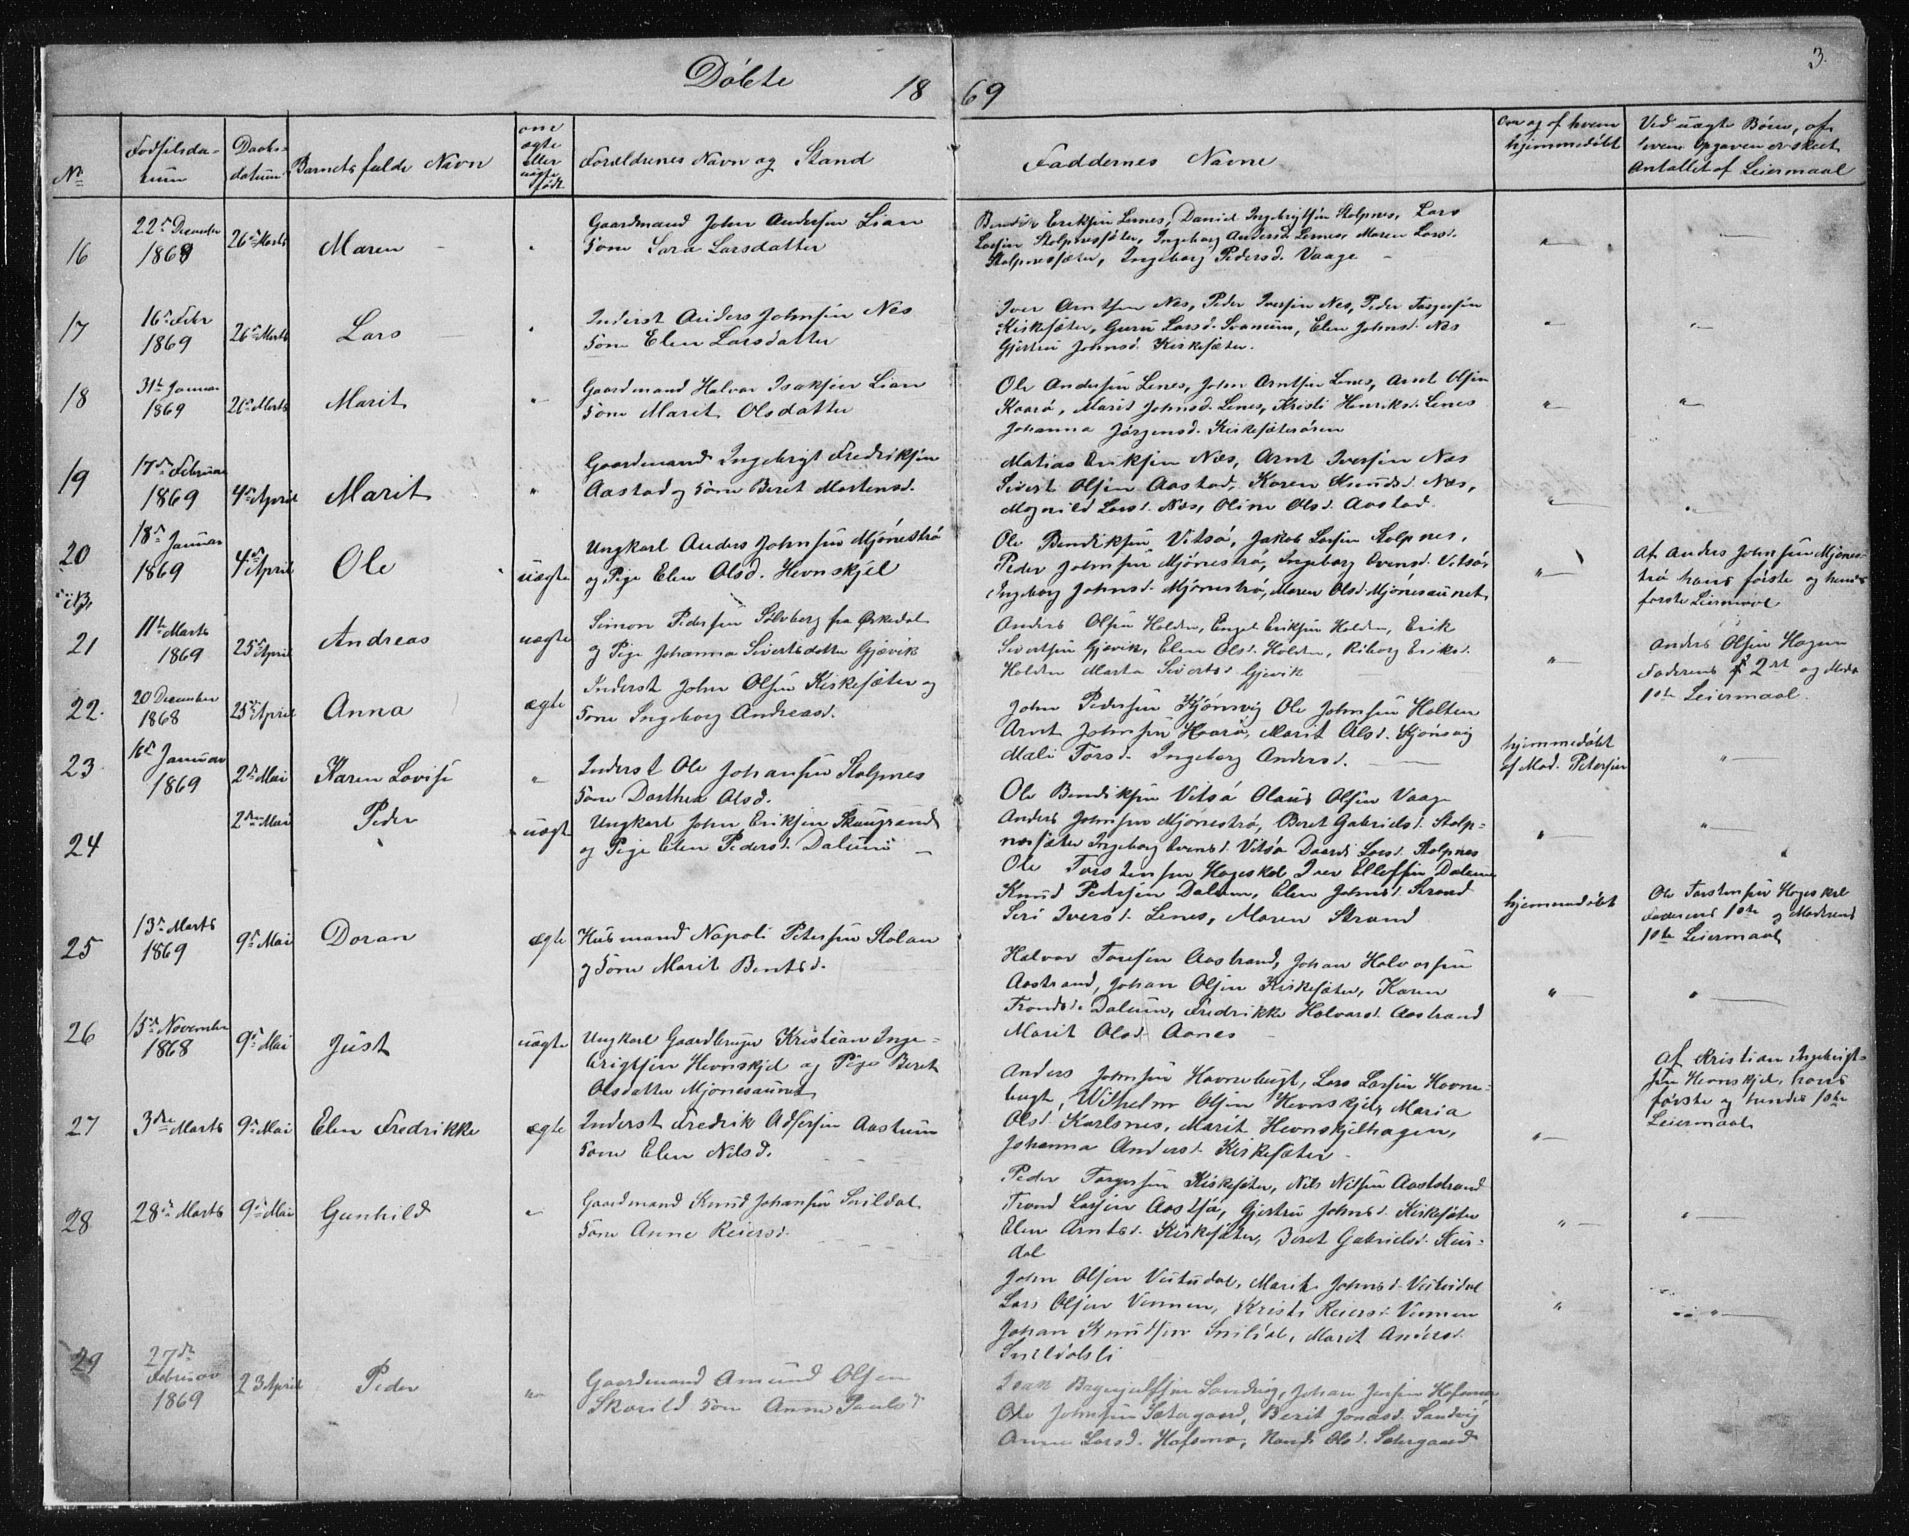 3.
Døbte 18 69
No
Fødselsda-
tum
Daabs-
datum
Barnets fulde Navn
om
ægte
eller
uægte
født
Forældrenes Navn og Stand
Faddernes Navne
Om og af hvem
hjemmedøbt
Ved uægte Børn, af
hvem Opgaven er skeet
Antallet af Leiermaal
16
22de December
1868
26de Marts
Maren
Gaardmand John Andersen Lian
Kone Sara Larsdatter
Eriksen Lenes, Daniel Ingebrigtsen Stolpnes, Lars
Larsen Stolpnessæter, Ingeborg Andersd. Lenes, Maren Larsd.
Stolpnessæter, Ingeborg Pedersd. Vaage
17
16de Febr
1869
26de Marts
Lars
Inderst Anders Johnsen Næs
Kone Elen Larsdatter
Iver Arntsen Næs, Peder Iversen Næs, Peder Torgersen
Kirksæter, Guru Larsd. Svanem, Elen Johnsd. Næs
Gjertru Johnsd. Kirkesæter.
18
31te Januar
1869
26de Marts
Marit
Gaardmand Halvor Isaksen Lian
Kone Marit Olsdatter
Ole Andersen Lenes, John Arntsen Lenes, Arnt Olsen
Kaarø, Marit Johnsd. Lenes, Kristi Henriksd. Lenes
Johanna Jørgensd. Kirkesæterøren
19
17de Februar
1869
4de April
Marit
Gaardmand Ingebrigt Fredriksen
Aastad og Kone Beret Mortensd.
Matias Eriksen Næs, Arnt Iversen Næs
Sivert Olsen Aastad, Karen Knudsd. Næs,
Magnild Larsd. Næs, Oline Olsd. Aastad
20
18de Januar
1869
4de April
Ole
uægte
Ungkarl Anders Johnsen Mjønestrø
og Pige Elen Olsd. Hevnskjel
Ole Bendiksen Vitsø, Jakob Larsen Stolpnes,
Peder Johnsen Mjønestrø, Ingeborg Evensd. Vitsø,
Ingeborg Johnsd. Mjønestrø, Maren Olsd. Mjønesaunet
Af Anders Johnsen Mjønes-
trø hans første og hendes
første Leiermaal
21
11te Marts
1869
25de April
Andreas
uægte
Simon Pedersen Sølvberg fra Ørkedal
og Pige Johanna Sivertsdatter Gjævik
Anders Olsen Holden, Engel Eriksen Holden, Erik
Sivertsen Gjevik, Elen Olsd. Holden, Riborg Eriksd.
Holden Marta Sivertsd. Gjevik
Anders Olsen Hagen
Faderens 2det og Mod.
1ste Leiermaal.
22.
20 December
1868
25de April
Anna
ægte
Inderst John Olsen Kirkesæter og
Kone Ingeborg Andreasd.
John Pedersen Kjønsvig Ole Johnsen Holten
Arnt Johnsen Kaarø, Marit Olsd. Kjønsvig
Mali Torsd. Ingeborg Andersd.
hjemmedøbt
af Mad. Petersen
23
16de Januar
1869
2den Mai
Karen Lovise
Inderst Ole Johansen Stolpnes
Kone Dorthea Olsd.
Ole Bendiksen Vitsø Olaus Olsen Vaage
Anders Johnsen Mjønestrø, Beret Gabrielsd. Stolp-
nessæter Ingeborg Evensd. Vitsø Larsd. Stolpnes
24
2den Mai
Peder
uægte
Ungkarl John Eriksen Skaugrand
og Pige Elen Pedersd. Dalum
Ole Torstensen Hageskal Iver Ellefsen Dalum
Knud Pedersen Dalum, Elen Johnsd. Strand
Seri Iversd. Lenes, Maren Strand
hjemmedøbt
Ole Torstensen Hageskal
Faderens 1ste og Moderens
1ste Leiermaal
25
13de Marts
1869
9de Mai
Doran
ægte
Husmand Napoli Petersen Stolan
og Kone Marit Bentsd.
Halvor Toresen Aastrand, Johan Halvorsen
Aastrand, Johan Olsen Kirkesæter, Karen
Trondsd. Dalum, Fredrikke Halvorsd. Aastrand
Marit Olsd. Aanes
26
15de November
1868
9de Mai
Just
uægte
Ungkarl Gaardbruger Kristian Inge-
brigtsen Hevnskjel og Pige Beret
Olsdatter Mjønesaunet
Anders Johnsen Havnebugt, Lars Larsen Havne-
bugt, Wilhelm Olsen Hevnskjel, Maria
Olsd. Karlsnes, Marit Hevnskjelhagen,
Johanna Andersd. Kirkesæter
Af Kristian Ingebrigt-
sen Hevnskjel, hans
første og hendes 1ste
Leiermaal
27
3die Marts
9de Mai
Elen Fredrikke
ægte
Inderst Fredrik Adsersen Aastrum
Kone Elen Nilsd.
Peder Torgersen Kirkesæter, Nils Nilsen Aaststrand
Trond Larsen Aastsø, Gjertru Johnsd. Kirkesæter
Elen Arntsd. Kirkesæter, Beret Gabrielsd.
dal
28
28de Marts
9de Mai
Gunhild
Gaardmand Knud Johansen Snildal
Kone Anne Reiersd.
John Olsen Vutudal, Marit Johnsd. Vutudal
Lars Olsen Vennen, Kristi Reiersd. Vennen
Johan Knudsen Snildal, Marit Andersd.
Snildalsli
29
27de
Februar
1869
23 April
Peder
Gaardmand Amund Olsen
Skarild Kone Anne Paulsd
Isak Sandvig, Johan Jensen Hafsmo
Ole Johnsen Satergaard, Berit Jonasd. Sandvig
Anne Larsd. Hafsmo, Olsd. Satergaard